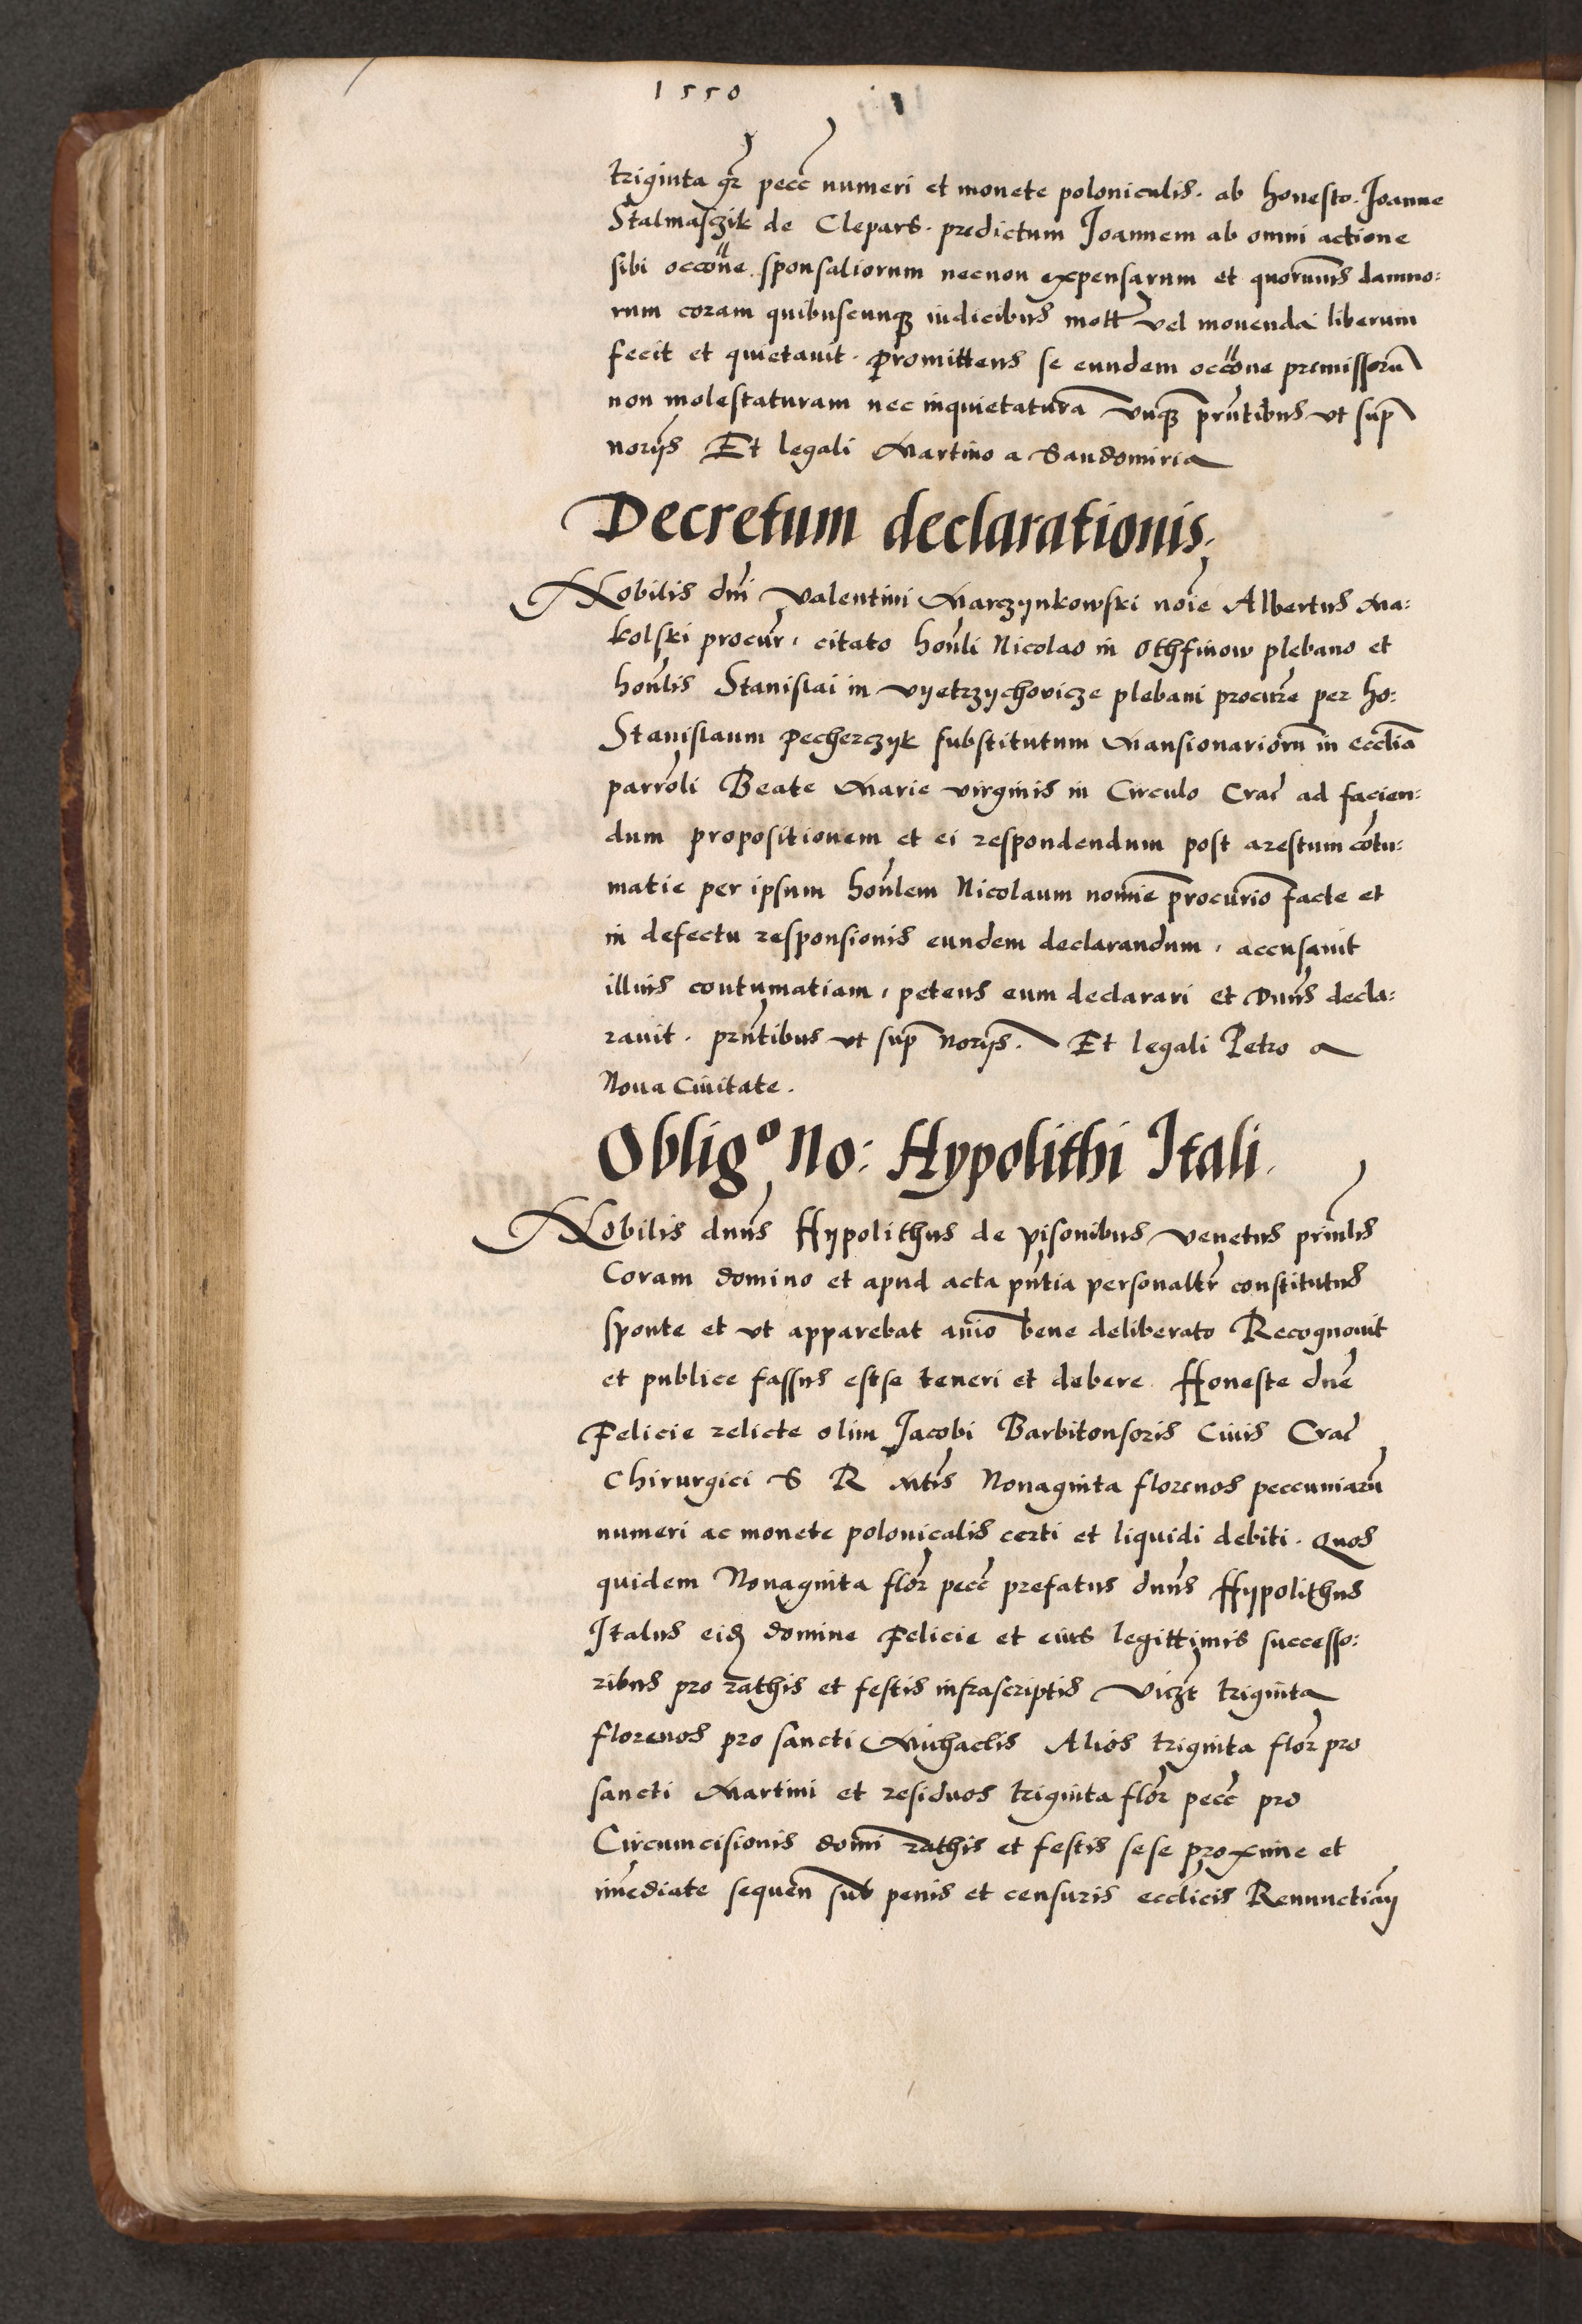 1550
triginta gr̃ pecc̃ numeri et monete poloniculis. ab honesto. Joanne
Stalmasczik de Clepars. predictum Joannem ab omni actione
sibi occõne sponsaliorum necnon expensarum et quorum̃s damno:
rum coram quibuscunqꝫ iudicibus mott̃ vel mouenda liberum
fecit et quietauit. Promittens se eundem occõne premissorũ
non molestaturam nec inquietaturã vnqꝫ prñtibus vt sup̃
norijs Et legali Martino a Sandomiria
Decretum declarationis.
Nobilis dñi Valentini Marczynkowski noĩe Albertus Ma:
kolski procur̃, citato hoñli Nicolao in Othfinow plebano et
hoñlis Stanislai in Vyetrzychovicze plebani procur̃e per ho:
Stanislaum Pecherczyk substitutum Mansionariorũ in eccliã
parrõli Beate Marie virginis in Circulo Crac̃ ad facien:
dum propositionem et ei respondendum post arestum cõtu:
matie per ipsum hoñlem Nicolaum nomĩe procurio facte et
in defectu responsionis eundem declarandum, accusauit
illius contumatiam, petens eum declarari et Dñus decla:
rauit. prñtibus vt sup̃ norijs. Et legali Petro a
Noua Ciuitate.
Obligº No: Hypolithi Itali.
Nobilis dñus Hypolithus de Pisonibus Venetus prĩnlis
Coram domino et apud acta pñtia personaltr̃ constitutus
sponte et vt apparebat aĩo bene deliberato Recognouit
et publice fassus est se teneri et debere Honeste dñe
Felicie relicte olim Jacobi Barbitonsoris Ciuis Crac̃
Chirurgici S R Mtis Nonaginta florenos peccuniarũ
numeri ac monete polonicalis certi et liquidi debiti. Quos
quidem Nonaginta flor̃ pecc̃ prefatus dñus Hypolithus
Italus eidꝫ domine Felicie et eius legittimis successo:
ribus pro rathis et festis infrascriptis Viczt triginta
florenos pro sancti Michaelis Alios triginta flor̃ pro
sancti Martini et residuos triginta flor̃ pecc̃ pro
Circumcisionis domĩ rathis et festis sese proxime et
im̃ediate sequeñ sub penis et censuris ecclicis Renunctiãn